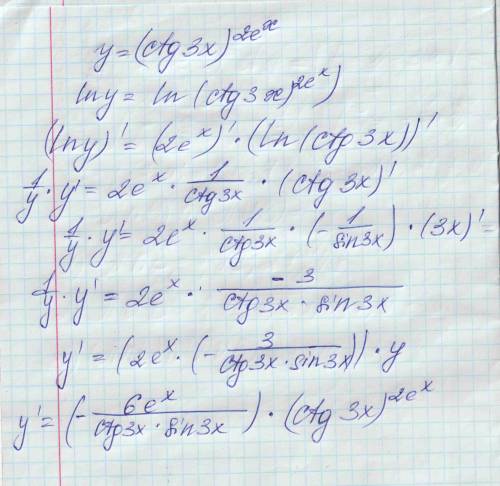 y = (ctg 3x)^{2e^x}
ln y = ln (ctg 3x)^{2e^x})
(ln y)' = (2e^x)' · (ln (ctg 3x))'
1/y · y' = 2e^x · 1/ctg3x · (ctg 3x)'
1/y · y' = 2e^x · 1/ctg3x · (- 1/sin3x) · (3x)' =
1/y · y' = 2e^x · -3/ctg3x · sin3x
y' = (2e^x · (- 3/ctg3x · sin3x)) · y
y' = (- 6e^x/ctg3x · sin3x) · (ctg 3x)^{2e^x}